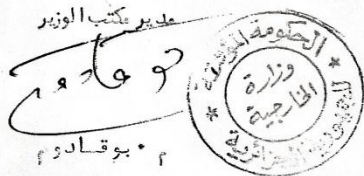 مدير مكتب الوزير
م٠ بوقادوم
الحكومة المؤقتة
للجمهورية الجزائرية
وزارة
الخارجية